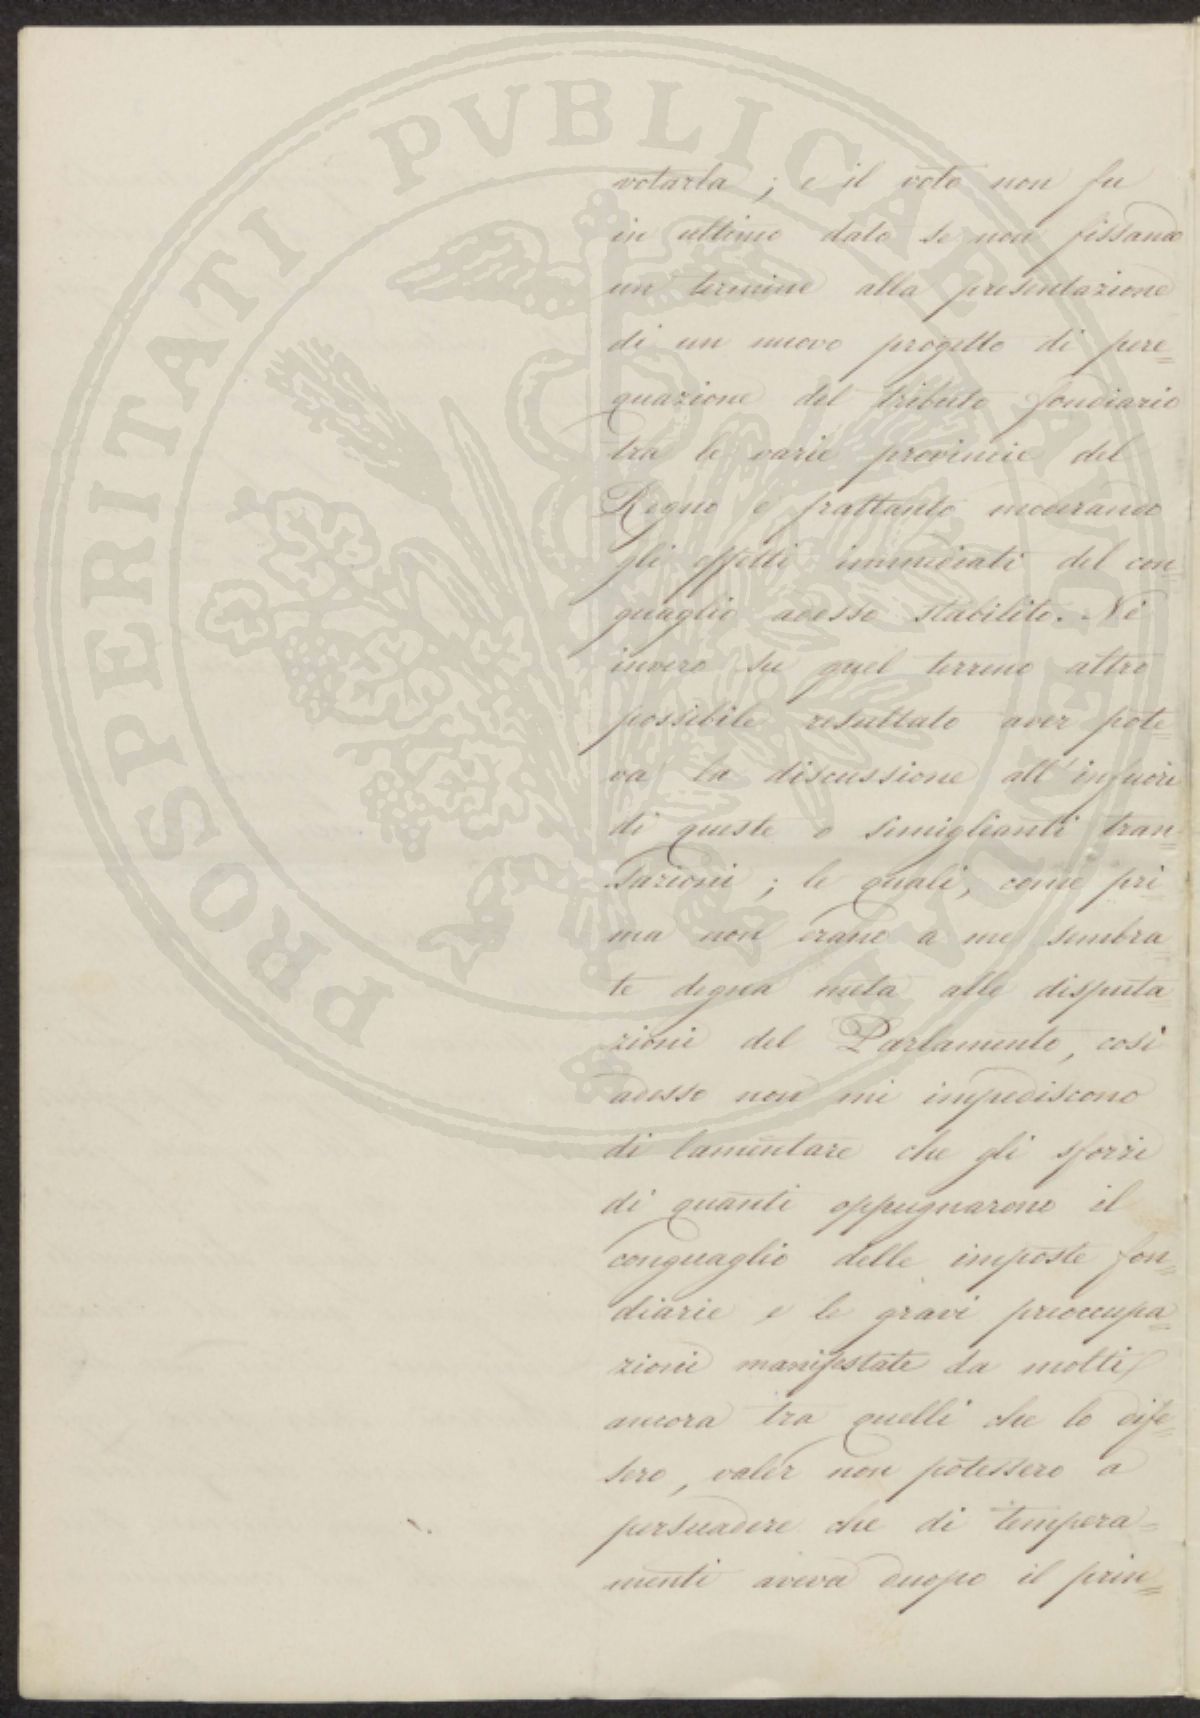 votarla; e il voto non fu
in ultimo dato se non fissando
un termine alla presentazione
di un nuovo progetto di pere=
quazione del tributo fondiario
tra le varie provincie del
Regno e frattanto moderando
gli effetti immediati del con=
guaglio adesso stabilito. Nè
invero su quel terreno altro
possibile resultato aver pote=
va la discussione all'infuori
di queste o simiglianti tran=
sazioni; le quali, come pri=
ma non erano a me sembra=
te degna meta alle disputa=
zioni del Parlamento, così
adesso non mi impediscono
di lamentare che gli sforzi
di quanti oppugnarono il
conguaglio delle imposte fon=
diarie e le gravi preoccupa=
zioni manifestate da molti
ancora tra quelli che lo dife=
sero, valer non potessero a
persuadere che di tempera=
menti aveva duopo il prin=
PROSPERITATI PVBLICAE AVGENDAE